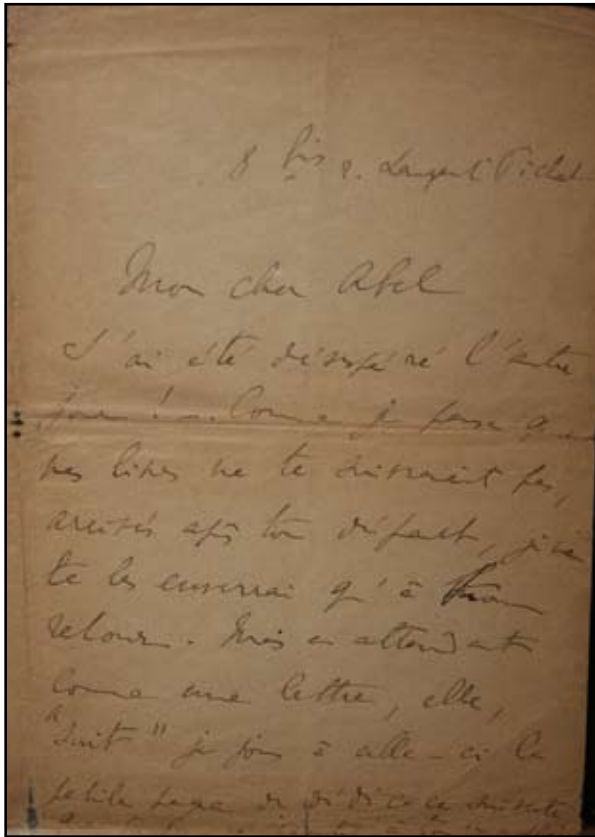 8 bis r. Laurent Pichat
Mon cher Abel
J'ai été désespéré l'autre
jour ! – Comme je pense que
mes livres ne te suivraient pas,
arrivés après ton départ, je ne
te les enverrai qu'à mon
retour. Mais en attendant
comme une lettre, elle,
"suit" je joins à celle-ci la
petite page de dédicace